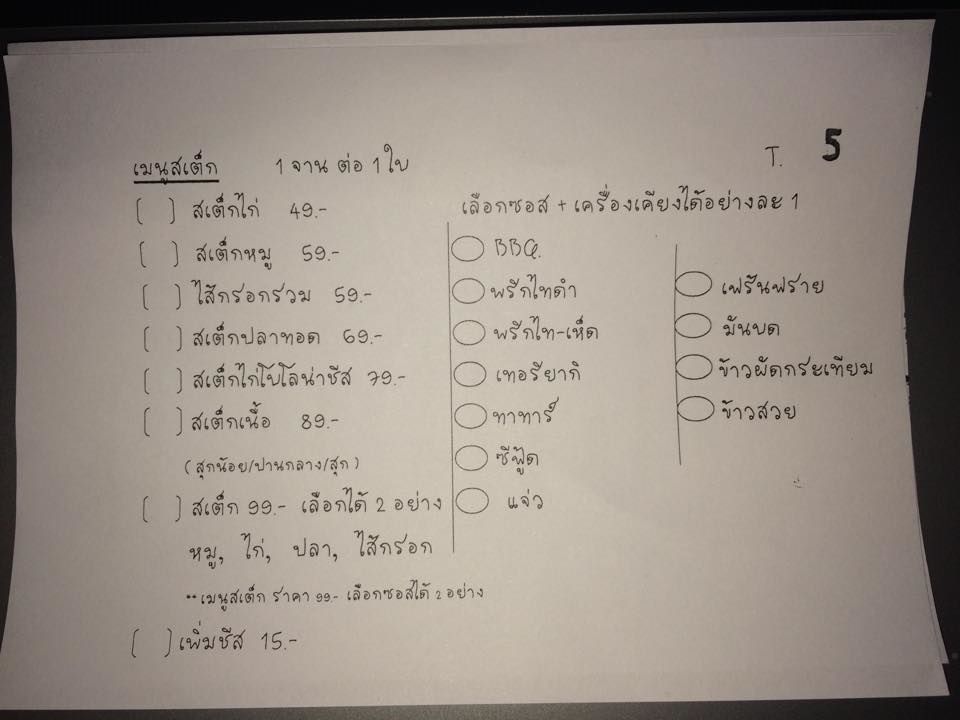 เมนูสเต็ก 1 จาน ต่อ 1 ใบ
T. 5
[ ] สเต็กไก่ 49.-
[ ] สเต็กหมู 59.-
[ ] ไส้กรอกรวม 59.-
[ ] สเต็กปลาทอด 69.-
[ ] สเต็กไก่โบโลน่าชีส 79.-
[ ] สเต็กเนื้อ 89.-
(สุกน้อย/ปานกลาง/สุก)
[ ] สเต็ก 99.- เลือกได้ 2 อย่าง
หมู, ไก่, ปลา, ไส้กรอก
**เมนูสเต็ก ราคา 99.- เลือกซอสได้ 2 อย่าง
[ ] เพิ่มชีส 15.-
เลือกซอส + เครื่องเคียงได้อย่างละ 1
BBQ.
พริกไทดำ
พริกไท-เห็ด
เทอริยากิ
ทาทาร์
ซีฟู้ด
แจ่ว
เฟร้นฟราย
มันบด
ข้าวผัดกระเทียม
ข้าวสวย